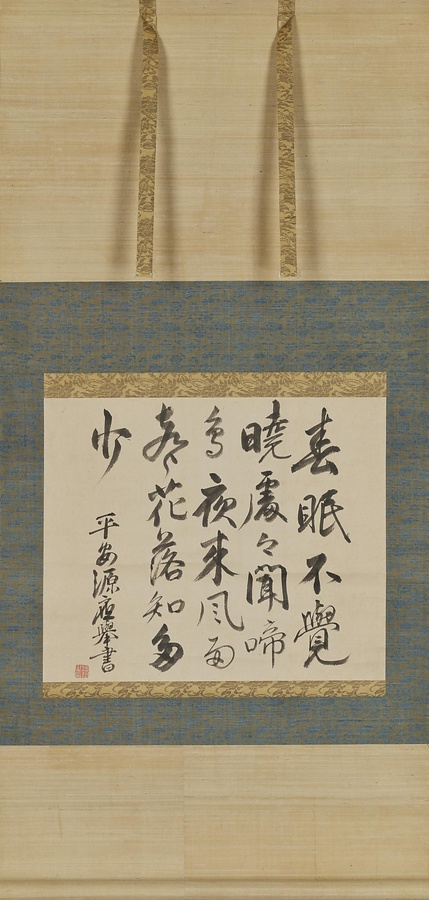 春眠不覺
曉處々聞啼
鳥夜来風雨
声花落知多
少
平安源應舉書